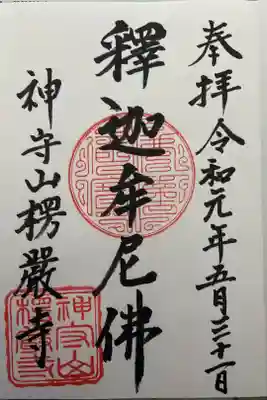 奉拝令和元年五月三十一日
釋迦牟尼佛
神守山楞嚴寺
神守山
楞嚴寺